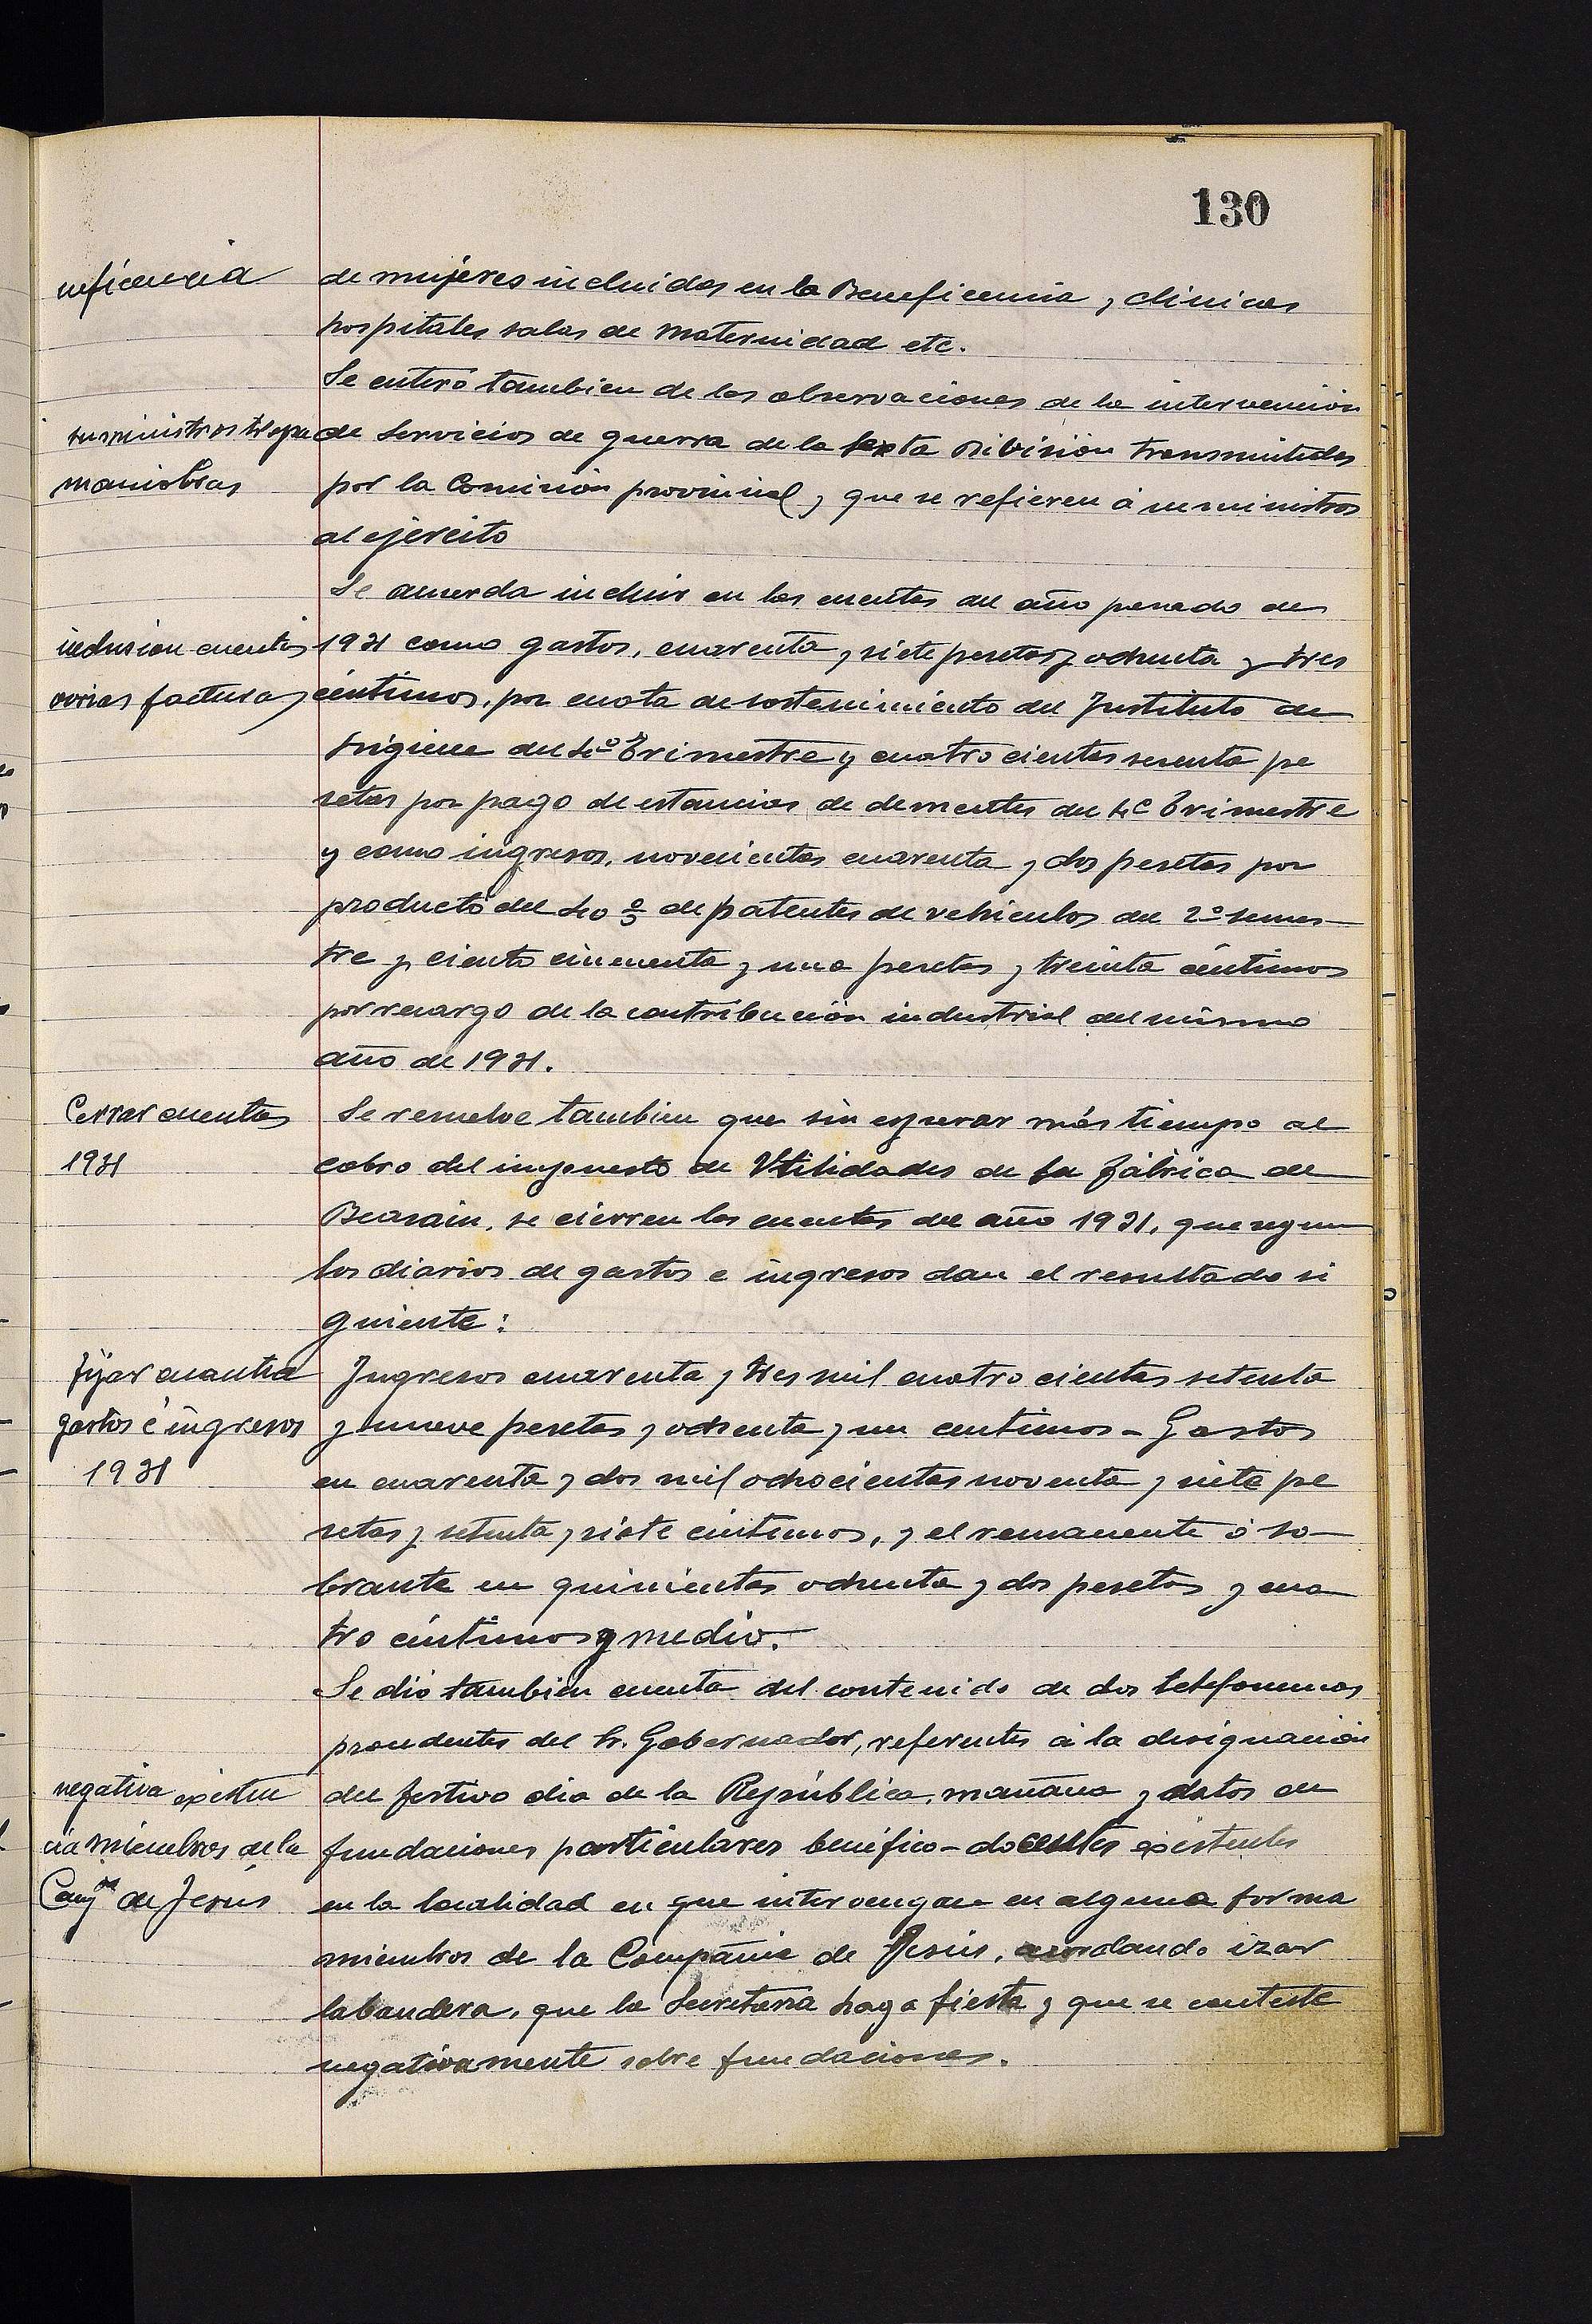 130
neficencia
de mujeres incluidas en la Beneficencia, clinicas
hospitales salas de maternidad etc.
Se enteró tambien de las observaciones de la intervención
suministros tropa
de Servicios de guerra de la Sexta División transmitidas
maniobras
por la Comisión provincial, y que se refieren á suministros
al ejército
Se acuerda incluir en las cuentas del año pasado de
inclusion cuentas
1931 como gastos, cuarenta y siete pesetas y ochenta y tres
varias facturas
céntimos, por cuota de sostenimiento del Instituto de
higiene del 4º Trimestre y cuatrocientas sesenta pe
setas por pago de estancias de dementes del 4º Trimestre
y como ingresos, novecientas cuarenta y dos pesetas por
producto del 40 % de patentes de vehiculos del 2º semes
tre y ciento cincuenta y una pesetas y treinta céntimos
por recargo de la contribución industrial del mismo
año de 1931.
Cerrar cuentas
1931
Se resuelve tambien que sin esperar más tiempo al
cobro del impuesto de Utilidades de la fábrica de
Beasain, se cierren las cuentas del año 1931, que segun
los diarios de gastos e ingresos dan el resultado si
guiente:
fijar cuantia
gastos é ingresos
1931
Ingresos cuarenta y tres mil cuatrocientas setenta
y nueve pesetas y ochenta y un centimos - Gastos
en cuarenta y dos mil ochocientas noventa y siete pe
setas y setenta y siete céntimos, y el remanente ó so
brante en quinientas ochenta y dos pesetas y cua
tro céntimos y medio.
Se dió tambien cuenta del contenido de dos telefonemas
procedentes del Sr. Gobernador, referentes á la designación
negativa existen
del festivo dia de la República, mañana y datos de
cia miembros de la
fundaciones particulares benéfico-docentes existentes
Compª de Jesús
en la localidad en que intervengan en alguna forma
miembros de la Compañia de Jesús, acordando izar
la bandera, que la Secretaria haga fiesta y que se conteste
negativamente sobre fundaciones.